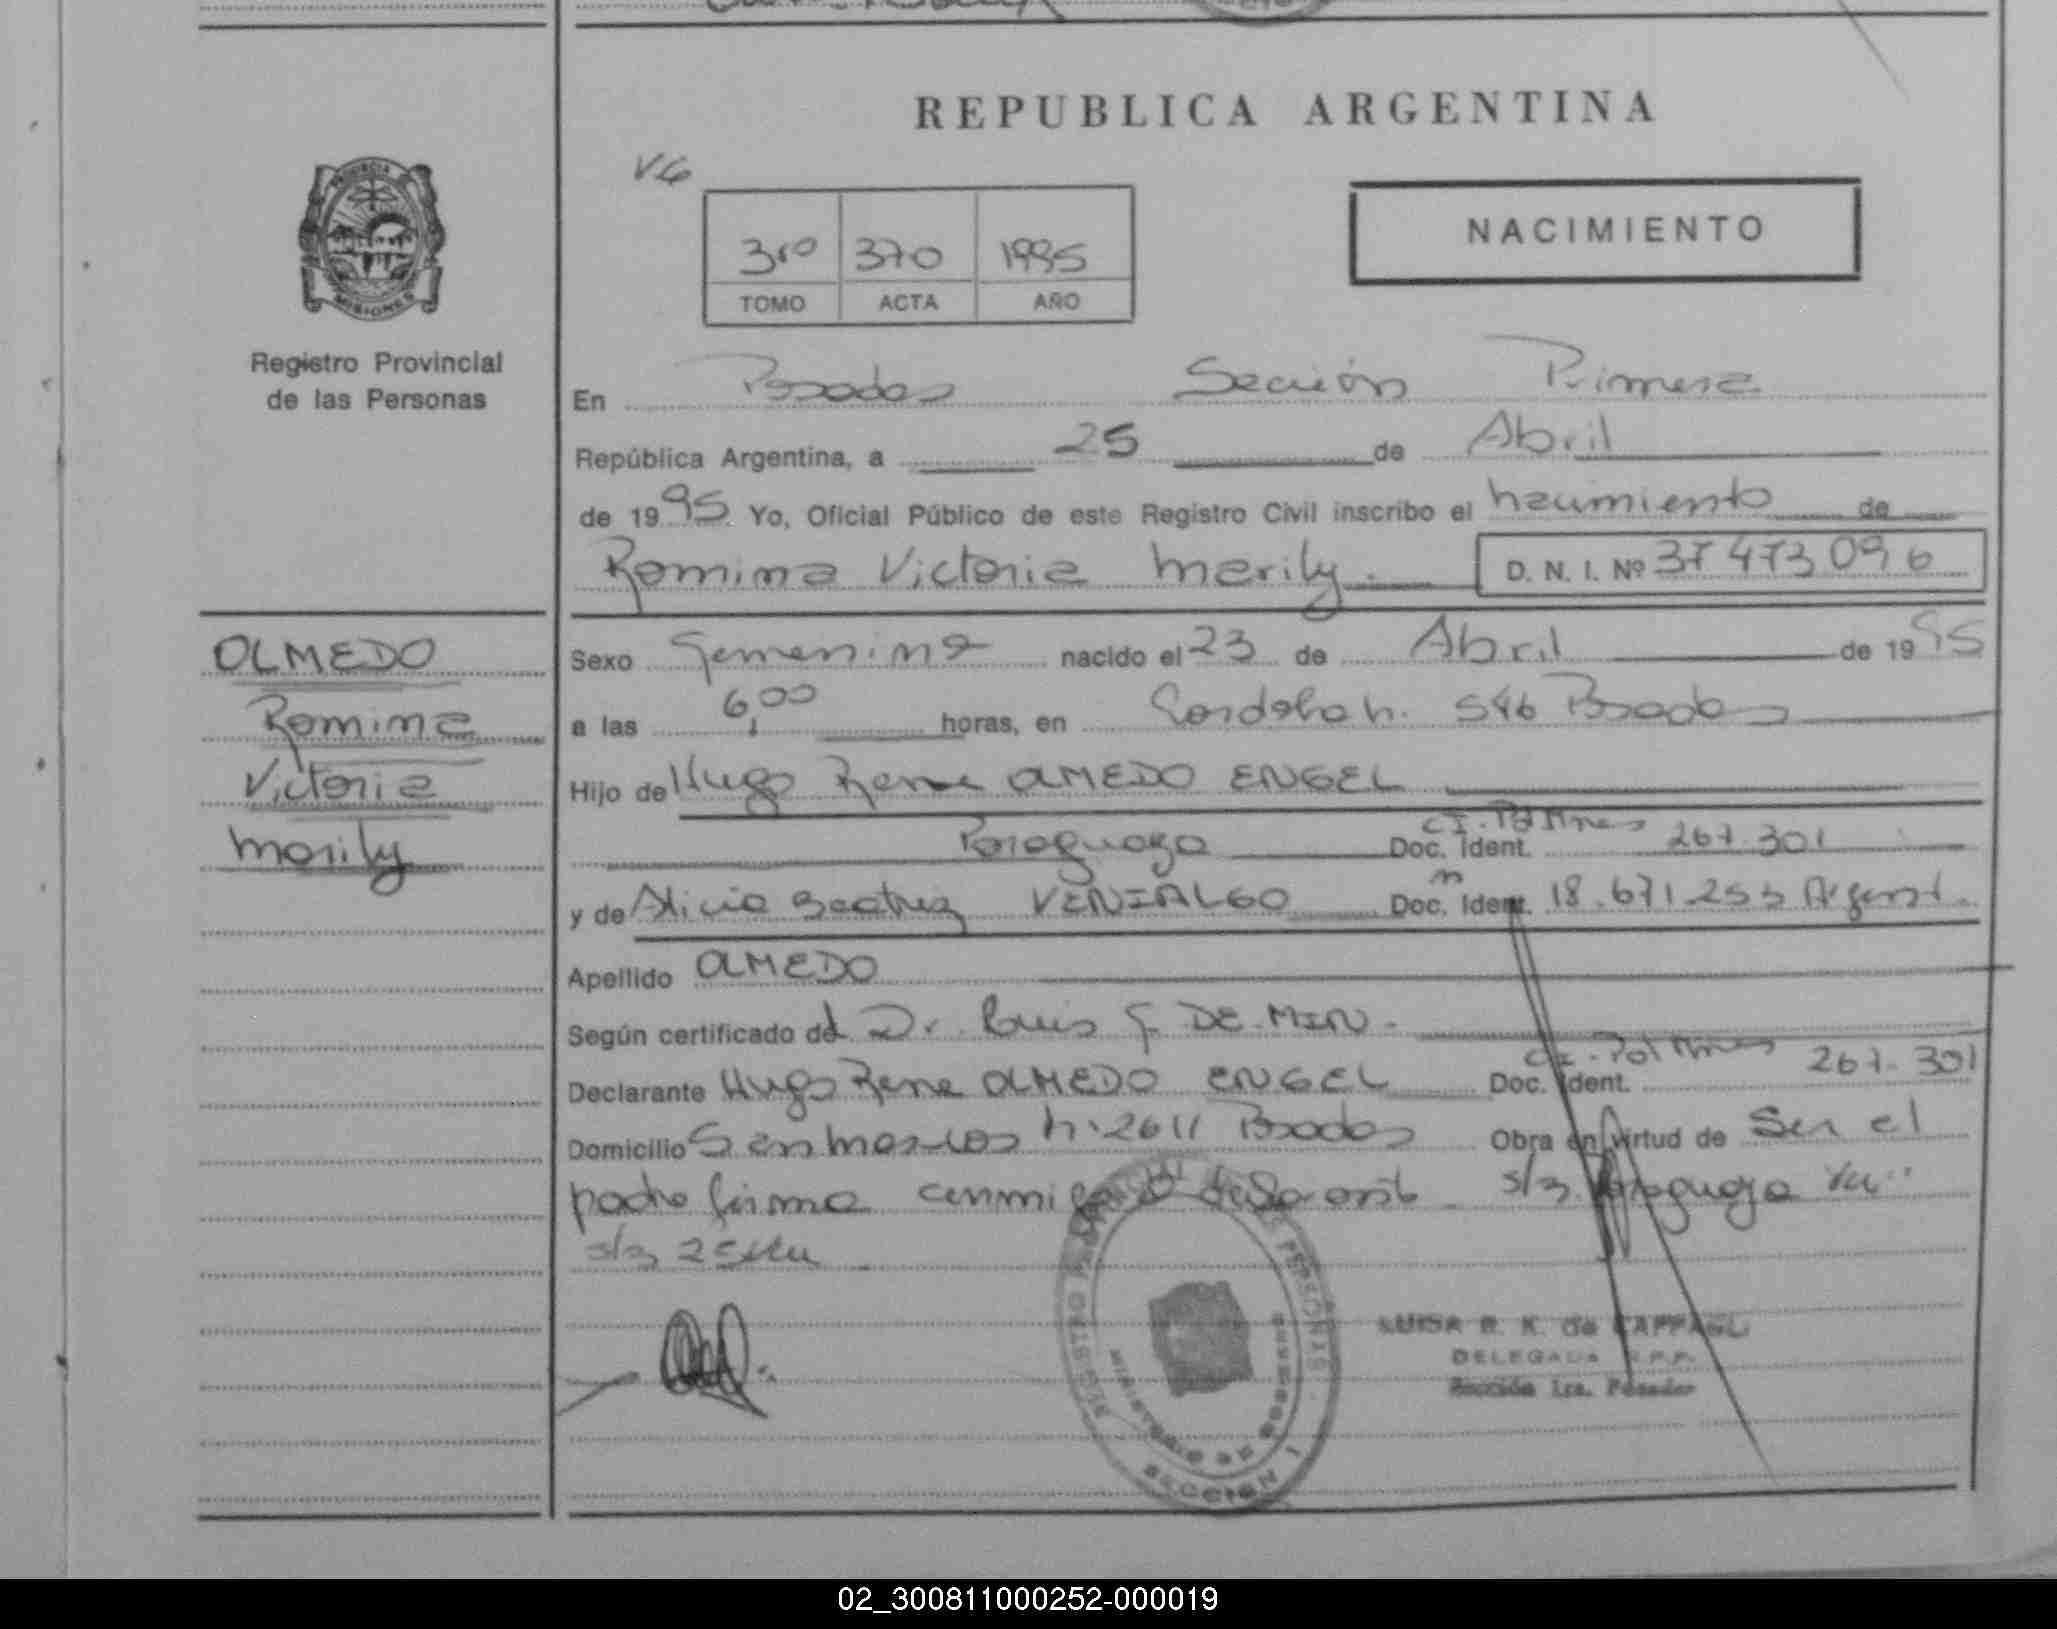 REPUBLICA ARGENTINA
PROVINCIA
MISIONES
Registro Provincial
de las Personas
3ro 370 1995
TOMO ACTA AÑO
NACIMIENTO
En Posadas Sección Primera
República Argentina, a 25 de Abril
de 1995 Yo, Oficial Público de este Registro Civil inscribo el nacimiento de
Romina Victoria Marily. D. N. I. Nº 37 473 096
OLMEDO
Romina
Victoria
Marily
Sexo Femenina nacido el 23 de Abril de 1995
a las 6,00 horas, en Cordoba n. 546 Posadas
Hijo de Hugo Rene OLMEDO ENGEL
Paraguaya CI. Pol Mnes Doc. Ident. 267.301
y de Alicia Beatriz VENIALGO Doc. Ident. 18.671.253 Argent.
Apellido OLMEDO
Según certificado del Dr. Luis G. DE MIN.
Declarante Hugo Rene OLMEDO ENGEL CI. Pol Mnes Doc. Ident. 267.301
Domicilio San Marcos n. 2611 Posadas Obra en virtud de Ser el
padre firma conmigo s/r Paraguaya
s/r
REGISTRO PROVINCIAL DE LAS PERSONAS
MINISTERIO DE GOBIERNO
SECCION 1
LUISA R. K. de CAPPAGLI
DELEGADA R.P.P.
Sección 1ra. Posadas
02_300811000252-000019